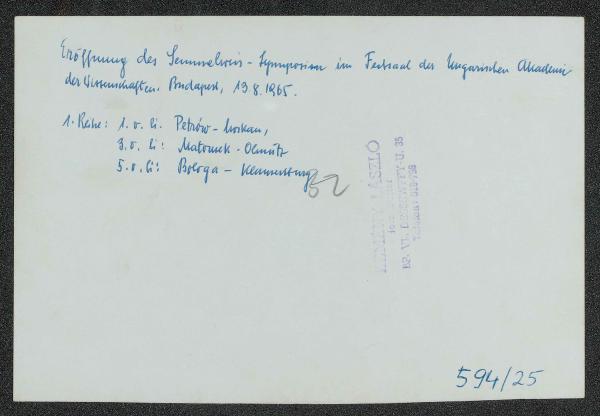 Eröffnung des Semmelweis-Symposium im Festsaal der Ungarischen Akademie
der Wissenschaften, Budapest, 19.8.1965.
1. Reihe: 1. v. li. Petrów - Moskau,
3. v. li: Matousek - Olmütz
5. v. li: Bologa - Klausenburg
52
LÁSZLÓ
BP. VI. U. 35
594/25